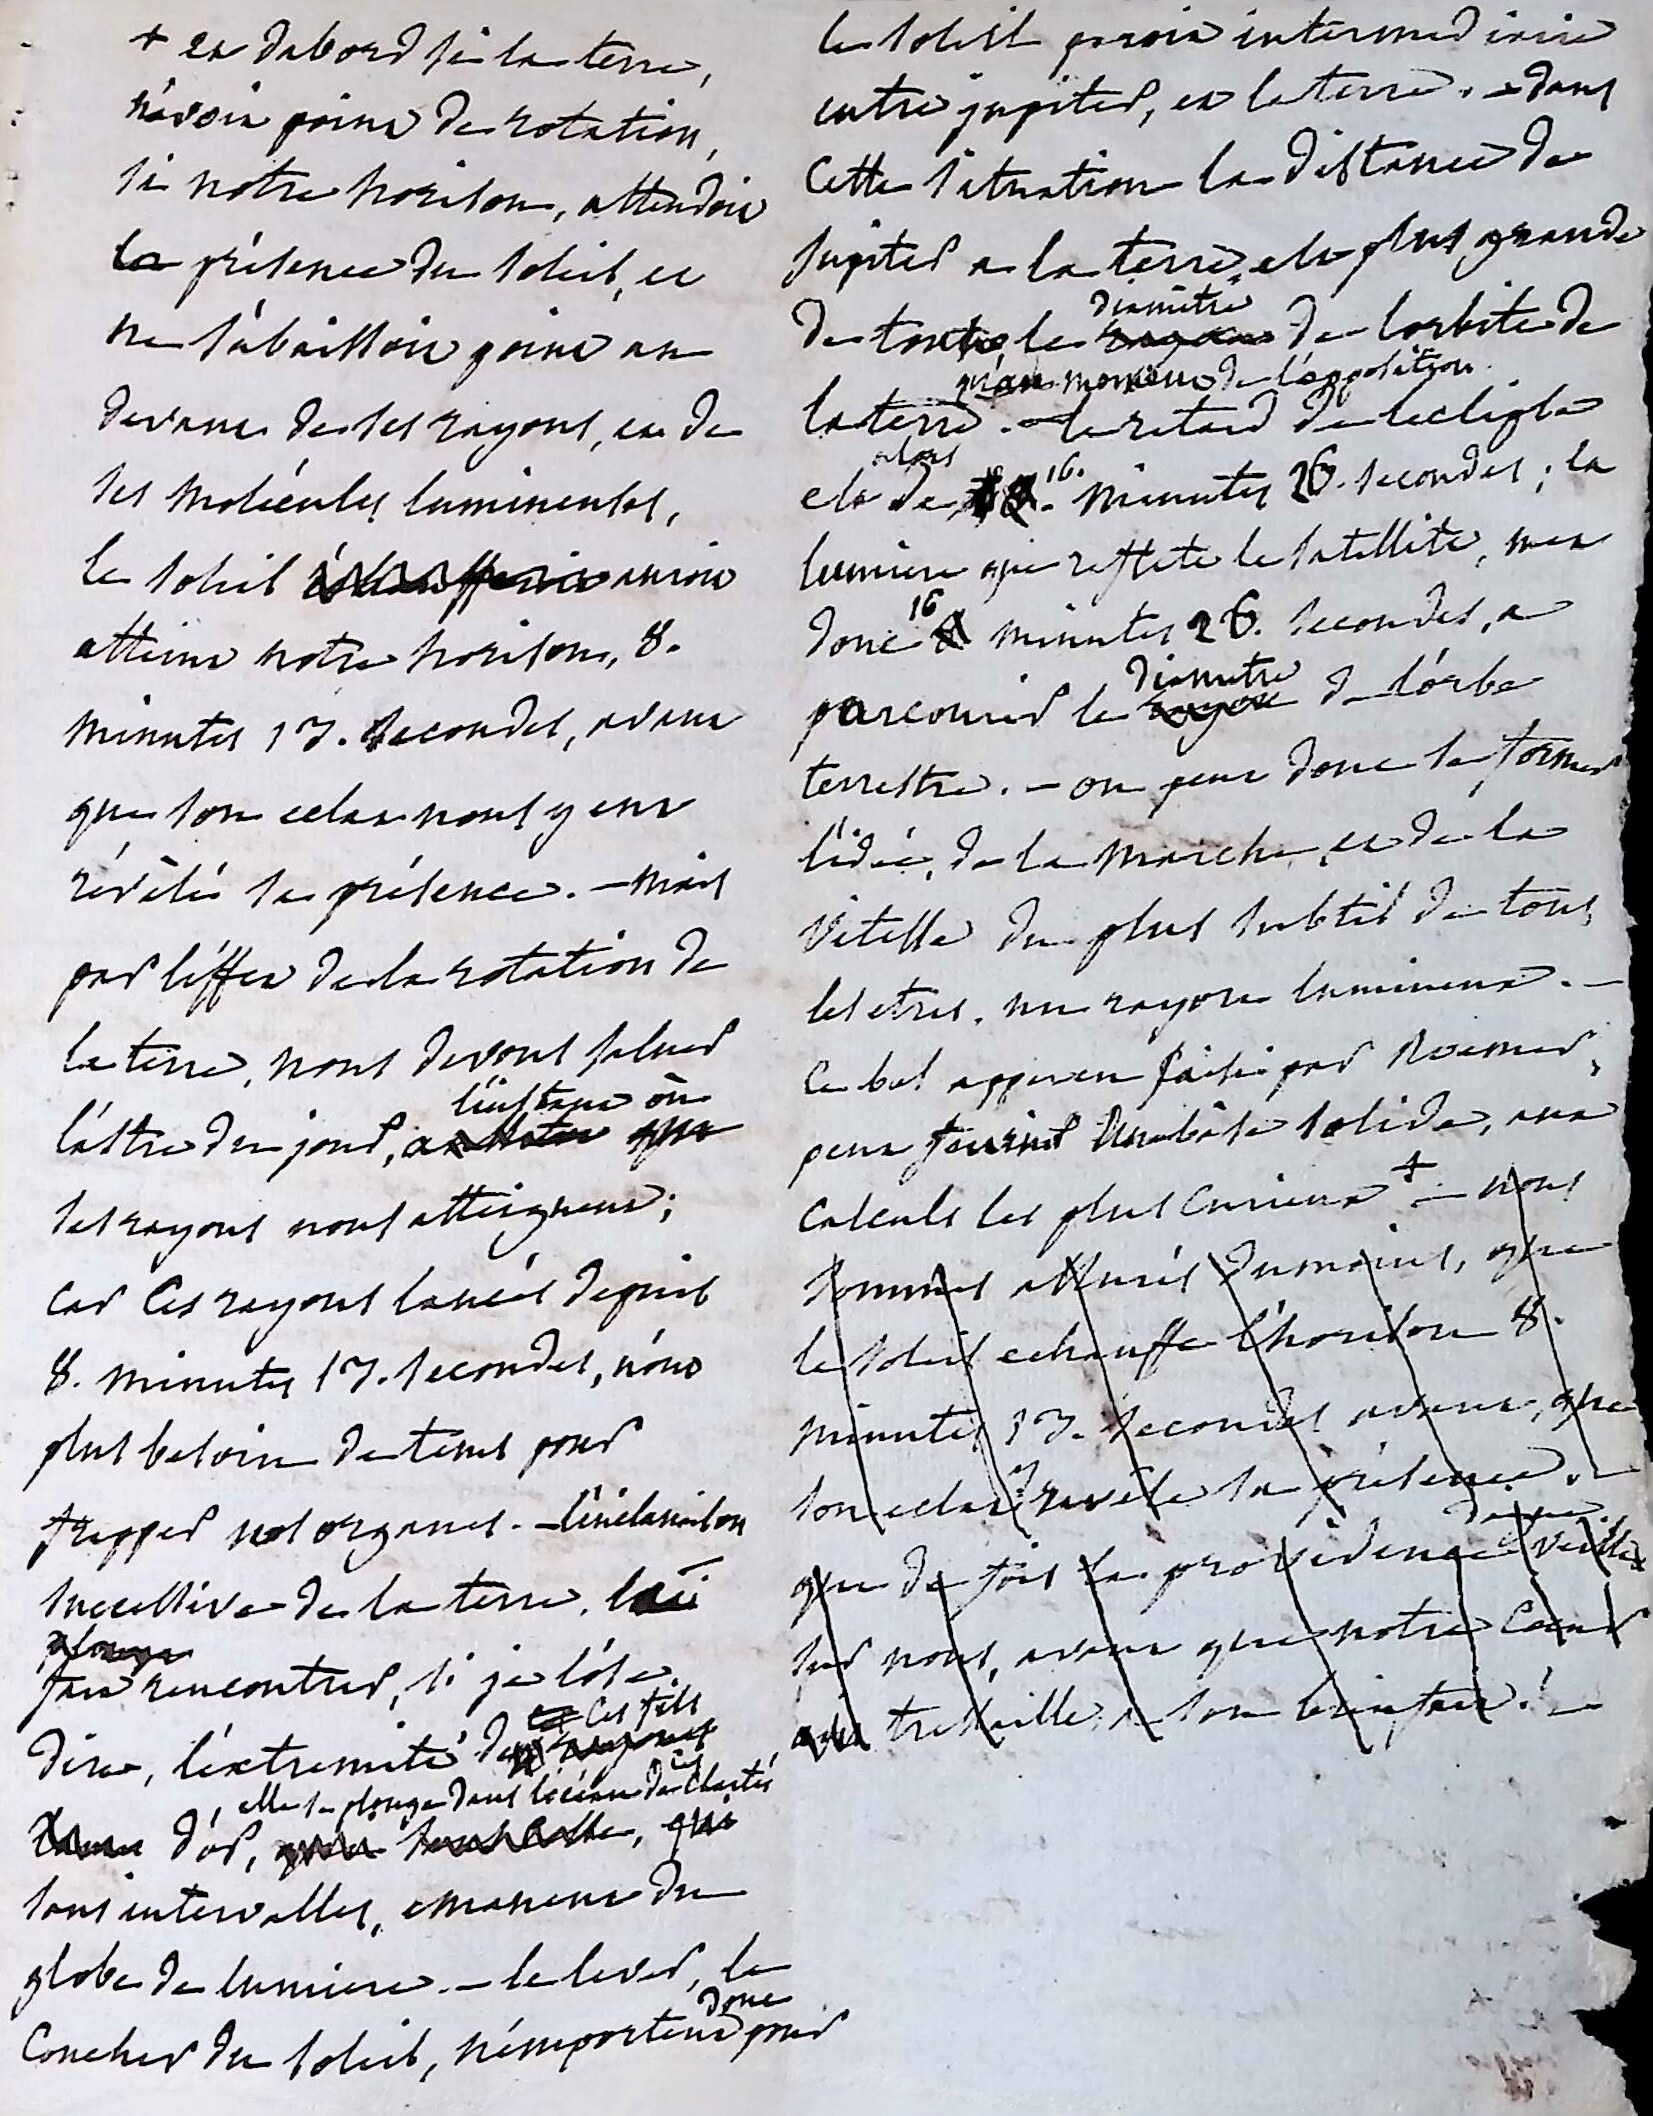 + et dabord si la terre,
n'avoit point de rotation,
si notre horison, attendoit
la présence du soleil, et
ne s'abaissoit point au
devant de ses rayons, et de
ses molécules lumineuses,
le soleil échaufferoit auroit
atteint notre horison, 8.
minutes 13. secondes, avant
que son eclat nous y eut
révélé sa présence. — mais
par l'éffet de la rotation de
la terre, nous devons saluer
l'instant où
l'astre du jour, aussitot que
ses rayons nous atteignent;
car ces rayons lancés depuis
8. minutes 13. secondes, n'ont
plus besoin de tems pour
frapper nos organes. — l'inclinaison
successive de la terre, lui
plonge
fait rencontrer, si je l'ose
dire, l'éxtremité de ces fils
rayons
elle se plonge dans l'océan de ces clartés
d'or, qui
sans intervalles, emanent du
globe de lumiere. — le lever, le
donc
coucher du soleil, n'emportent pour
le soleil paroit intermediaire
entre jupiter, et la terre. — dans
cette situation la distance de
jupiter a la terre, est plus grande
diamètre
de tout le rayon de l'orbite de
qu'au moment de l'opposition.
la terre. — le retard de leclipse
alors
est de 16. minutes 26. secondes; la
lumiere que reflete le satellite, met
16
donc 8 minutes 26. secondes, a
diametre
parcourir le rayon de l'orbe
terrestre. — on peut donc se former
l'idée, de la marche, et de la
vitesse du plus subtil de tous
les etres, un rayon lumineux. —
ce bel apperçu saisi par Roemer,
peut fournir une base solide, aux
calculs les plus curieux + — nous
sommes assurés du moins, que
le soleil echauffe l'horison 8.
minutes 13. secondes avant, que
son eclat n'y revele sa présence. —
daigne
que de fois la providence veille
sur nous, avant que notre coeur
ait tressailli a son bienfait! —